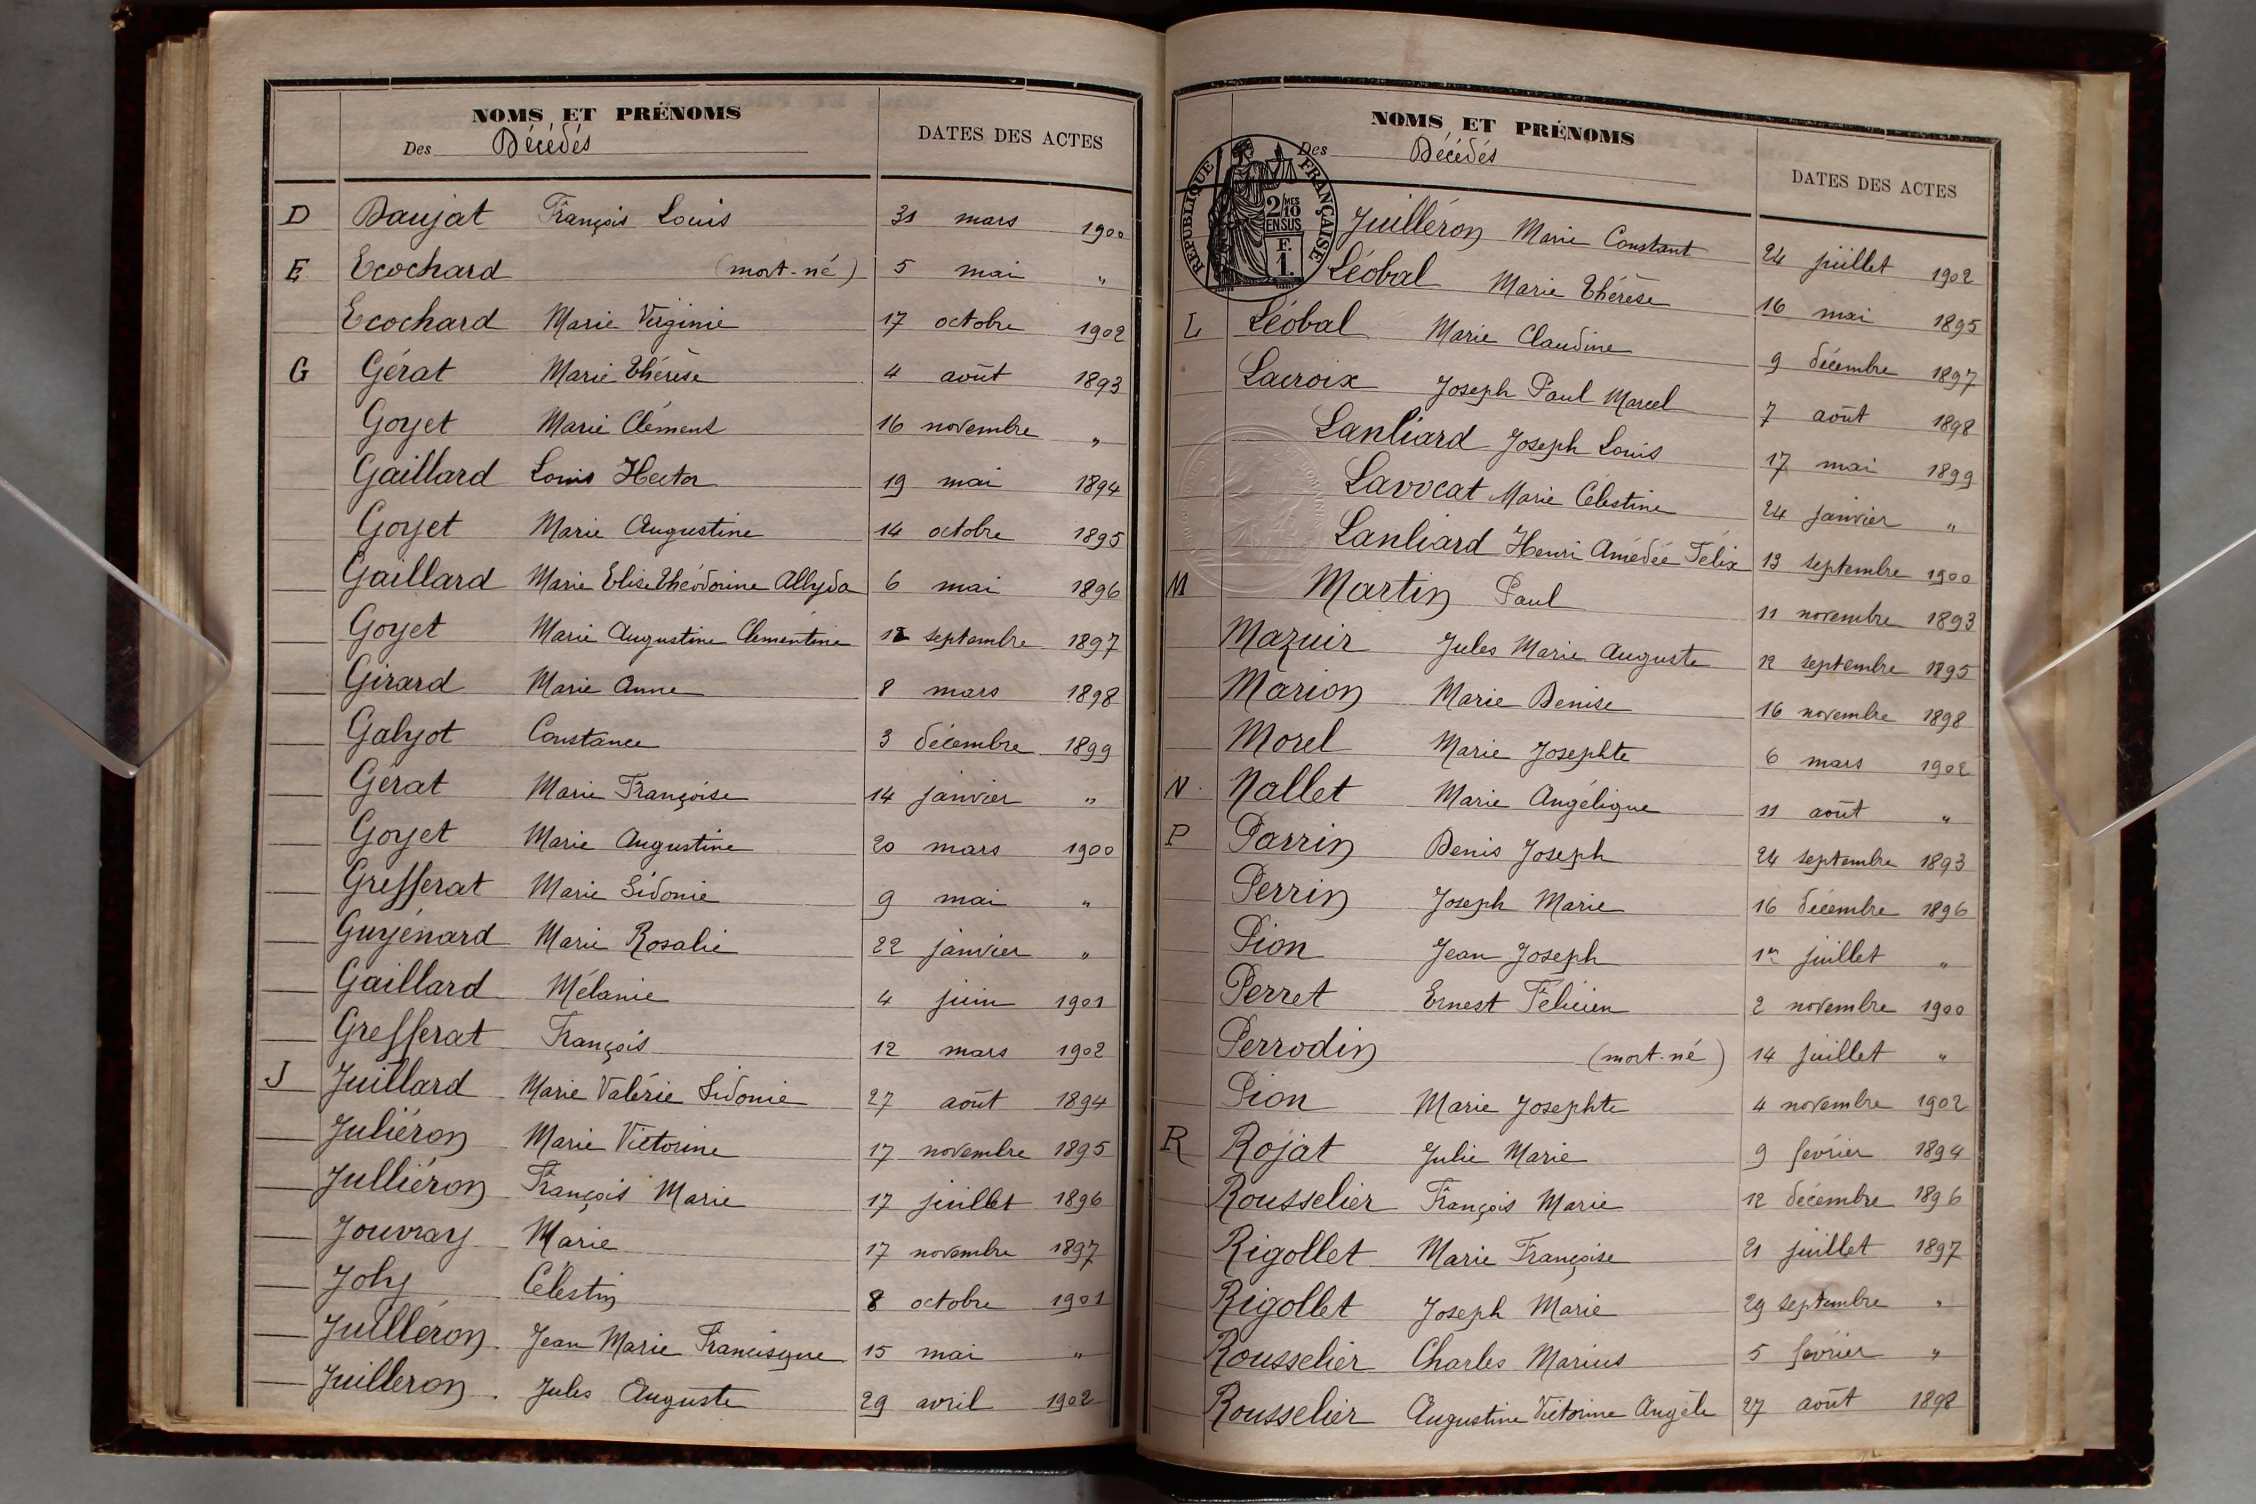 NOMS ET PRÉNOMS
Des Décédés
DATES DES ACTES
D Daujat François Louis 31 mars 1900
E Ecochard (mort-né) 5 mai "
Ecochard Marie Virginie 17 octobre 1902
G Gérat Marie Thérèse 4 août 1893
Goyet Marie Clément 16 novembre "
Gaillard Louis Hector 19 mai 1894
Goyet Marie Augustine 14 octobre 1895
Gaillard Marie Elise Théodorine Allyda 6 mai 1896
Goyet Marie Augustine Clémentine septembre 1897
Girard Marie Anne 8 mars 1898
Galyot Constance 3 décembre 1899
Gérat Marie Françoise 14 janvier "
Goyet Marie Augustine 20 mars 1900
Grefferat Marie Sidonie 9 mai "
Guyénard Marie Rosalie 22 janvier "
Gaillard Mélanie 4 juin 1901
Grefferat François 12 mars 1902
J Juillard Marie Valérie Sidonie 27 août 1894
Juliéron Marie Victorine 17 novembre 1895
Julliéron François Marie 17 juillet 1896
Jouvray Marie 17 novembre 1897
Joly Célestin 8 octobre 1901
Juilléron Jean Marie Francisque 15 mai "
Juilleron Jules Auguste 29 avril 1902
NOMS ET PRÉNOMS
Des Décédés
DATES DES ACTES
RÉPUBLIQUE FRANÇAISE
2/10 MES
EN SUS
F.
1.
Juilléron Marie Constant 24 juillet 1902
Léobal Marie Thérèse 16 mai 1895
L Léobal Marie Claudine 9 décembre 1897
Lacroix Joseph Paul Marcel 7 août 1898
Lanliard Joseph Louis 17 mai 1899
Lavocat Marie Célestine 24 janvier "
Lanliard Henri Amédée Félix 13 septembre 1900
M Martin Paul 11 novembre 1893
Mazuir Jules Marie Auguste 12 septembre 1895
Marion Marie Denise 16 novembre 1898
Morel Marie Josephte 6 mars 1902
N Nallet Marie Angélique 11 août "
P Parrin Denis Joseph 24 septembre 1893
Perrin Joseph Marie 16 décembre 1896
Pion Jean Joseph 1er juillet "
Perret Ernest Félicien 2 novembre 1900
Perrodin (mort-né) 14 juillet "
Pion Marie Josephte 4 novembre 1902
R Rojat Julie Marie 9 février 1894
Rousselier François Marie 12 décembre 1896
Rigollet Marie Françoise 21 juillet 1897
Rigollet Joseph Marie 29 septembre "
Rousselier Charles Marius 5 février "
Rousselier Augustine Victorine Angèle 27 août 1898